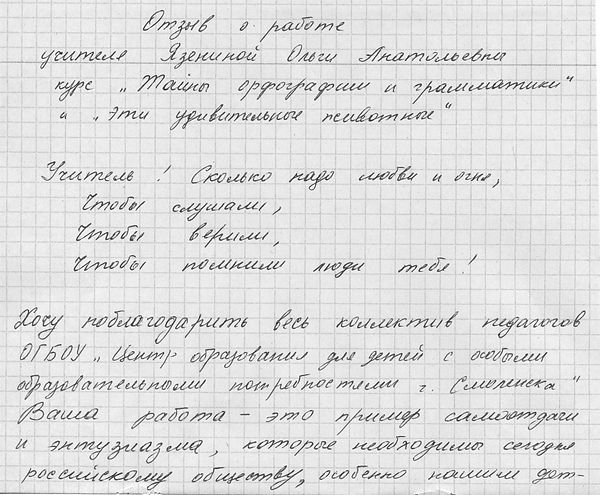 Отзыв о работе
учителя Язениной Ольги Анатольевны
курс „Тайны орфографии и грамматики"
и „Эти удивительные животные"
Учитель! Сколько надо любви и огня,
Чтобы слушали,
Чтобы верили,
Чтобы помнили люди тебя!
Хочу поблагодарить весь коллектив педагогов
ОГБОУ „Центр образования для детей с особыми
образовательными потребностями г. Смоленска"
Ваша работа – это пример самоотдачи
и энтузиазма, которые необходимы сегодня
российскому обществу, особенно нашим дет-